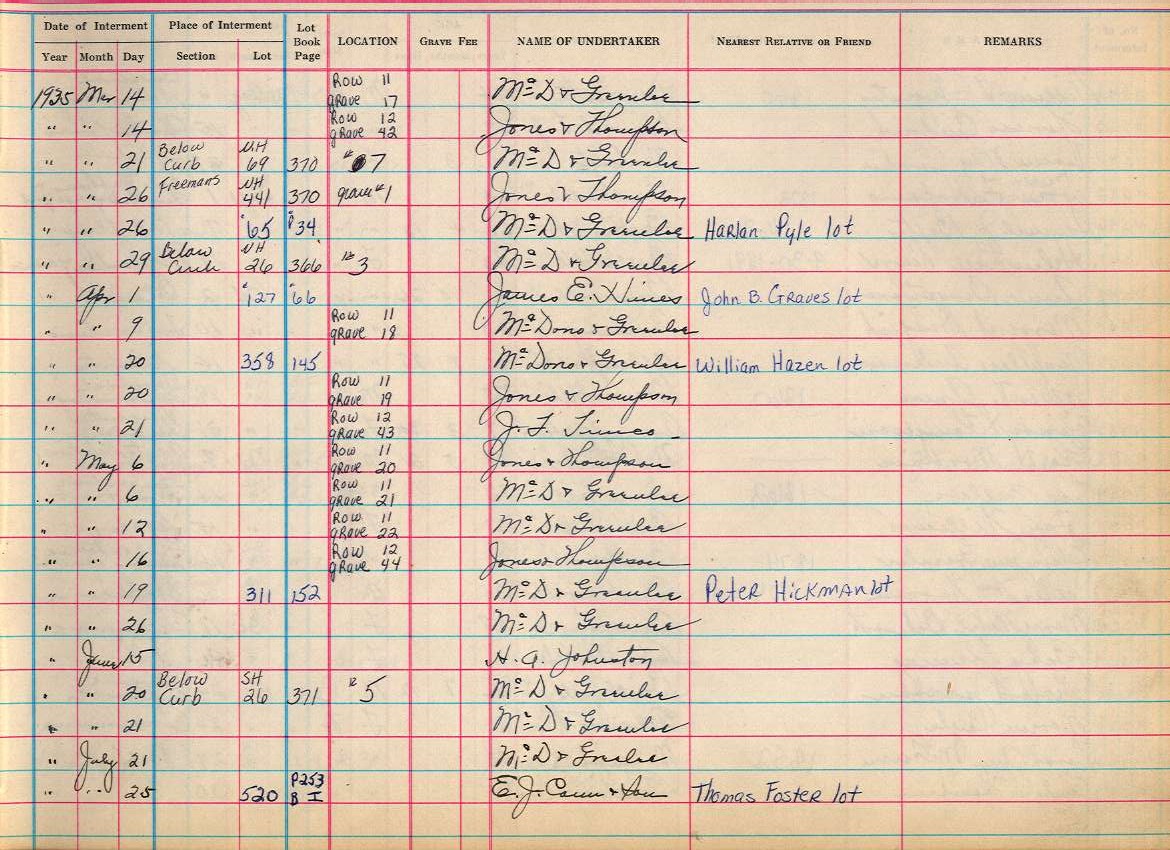 Date of Interment Place of Interment Lot Book Page LOCATION GRAVE FEE NAME OF UNDERTAKER NEAREST RELATIVE OR FRIEND REMARKS
Year Month Day Section Lot
1935 Mar 14 Row 11 grave 17 Mc D & Greenlee
" " 14 Row 12 grave 42 Jones & Thompson
" " 21 Below Curb NH 69 370 # 7 Mc D & Greenlee
" " 26 Freemans NH 441 370 grave #1 Jones & Thompson
" " 26 " 65 P 34 Mc D & Greenlee Harlan Pyle lot
" " 29 Below Curb NH 26 366 # 3 Mc D & Greenlee
" Apr 1 " 127 " 66 James E. Hines John B. Graves lot
" " 9 Row 11 grave 18 Mc Dono & Greenlee
" " 20 358 145 Mc Dono & Greenlee William Hazen lot
" " 20 Row 11 grave 19 Jones & Thompson
" " 21 Row 12 grave 43 J. F.
" May 6 Row 11 grave 20 Jones & Thompson
" " 6 Row 11 grave 21 Mc D & Greenlee
" " 12 Row 11 grave 22 Mc D & Greenlee
" " 16 Row 12 grave 44 Jones & Thompson
" " 19 311 152 Mc D & Greenlee Peter Hickman lot
" " 26 Mc D & Greenlee
" June 15 H. A. Johnston
" " 20 Below Curb SH 26 371 # 5 Mc D & Greenlee
" " 21 Mc D & Greenlee
" July 21 Mc D & Greenlee
" " 25 520 P253 B I E. J. & Son Thomas Foster lot